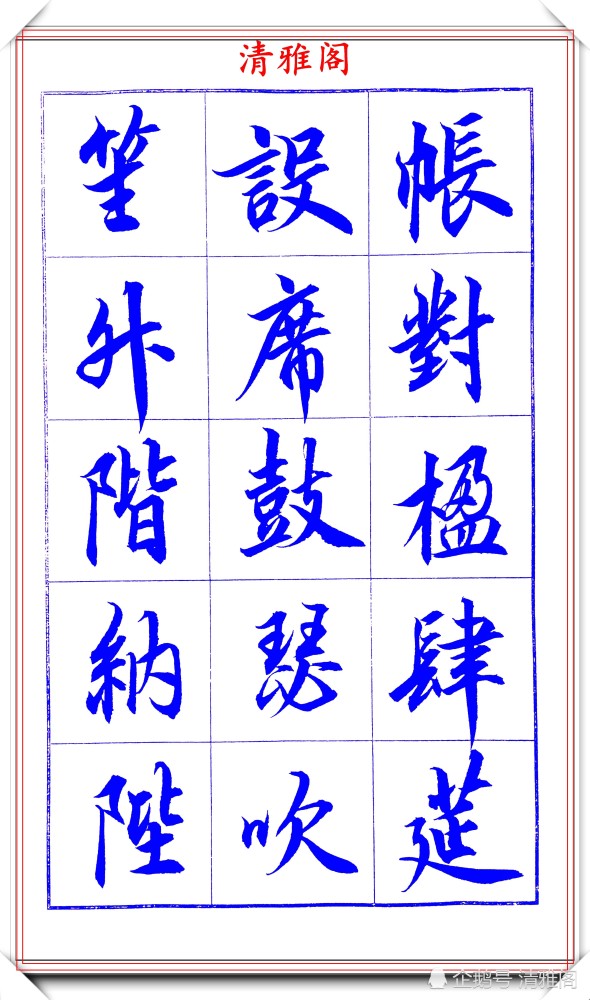 清雅阁
帳對楹肆莚
設席鼓瑟吹
笙升階納陛
企鹅号 清雅阁